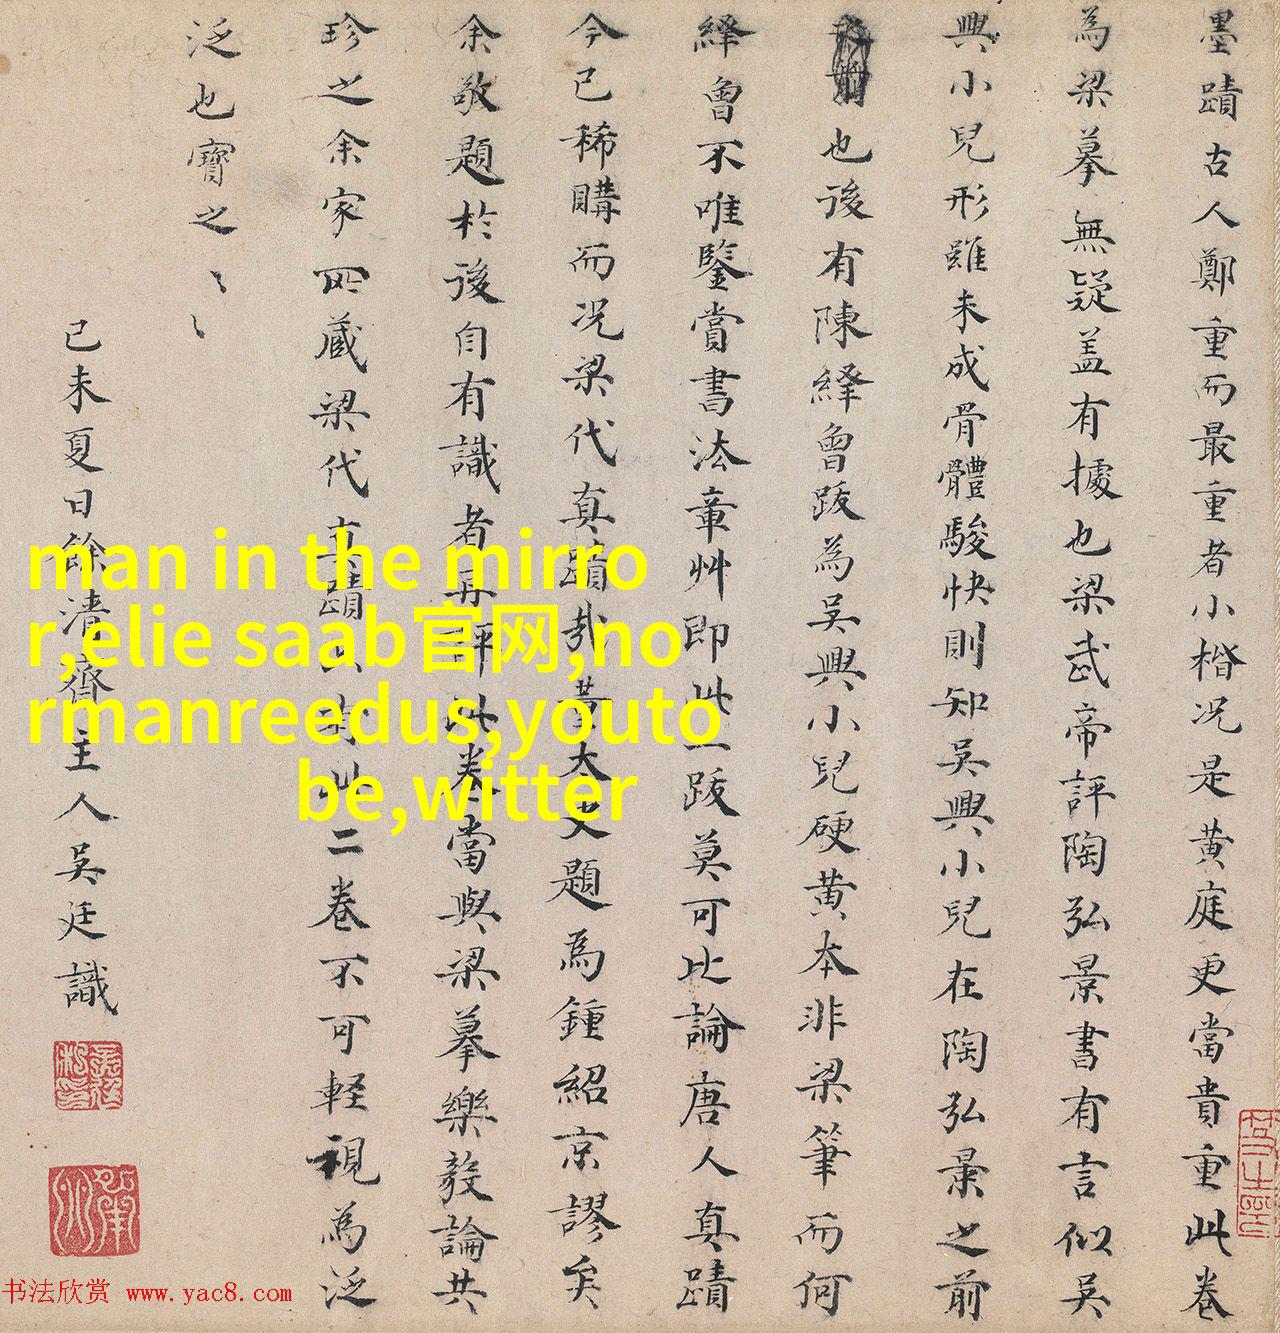 墨蹟古人鄭重而最重者小楷况是黄庭更當貴重此卷
為梁摹無疑盖有據也梁武帝評陶弘景書有言似吴
興小兒形雖未成骨體駿快則知吴興小兒在陶弘景之前
也後有陳繹曾跋為吴興小兒硬黄本非梁筆而何
繹曾不唯鑒賞書法章艸即此一跋莫可比論唐人真蹟
今已稀購而况梁代真蹟哉黄太史題為鍾紹京謬矣
余敬題於後自有識者再評此卷當與梁摹樂毅論共
珍之余家所藏梁代真蹟二卷不可軽視為泛
泛也寶之〻〻
己未夏日餘清齋主人吴廷識
man in the mirro
r,elie saab官网,no
rmanreedus,youto
be,witter
书法欣赏 www.yac8.com